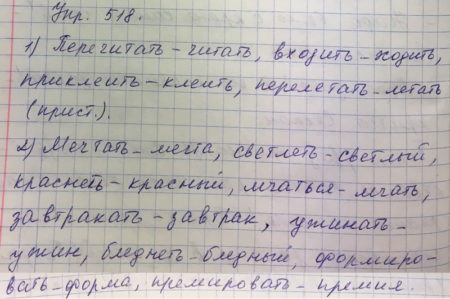 Упр. 518.
1) Перечитать – читать, входить – ходить,
приклеить – клеить, перелетать – летать
(прист.).
2) Мечтать – мечта, светлеть – светлый,
краснеть – красный, мчаться – мчать,
завтракать – завтрак, ужинать –
ужин, бледнеть – бледный, формиро-
вать – форма, премировать – премия.